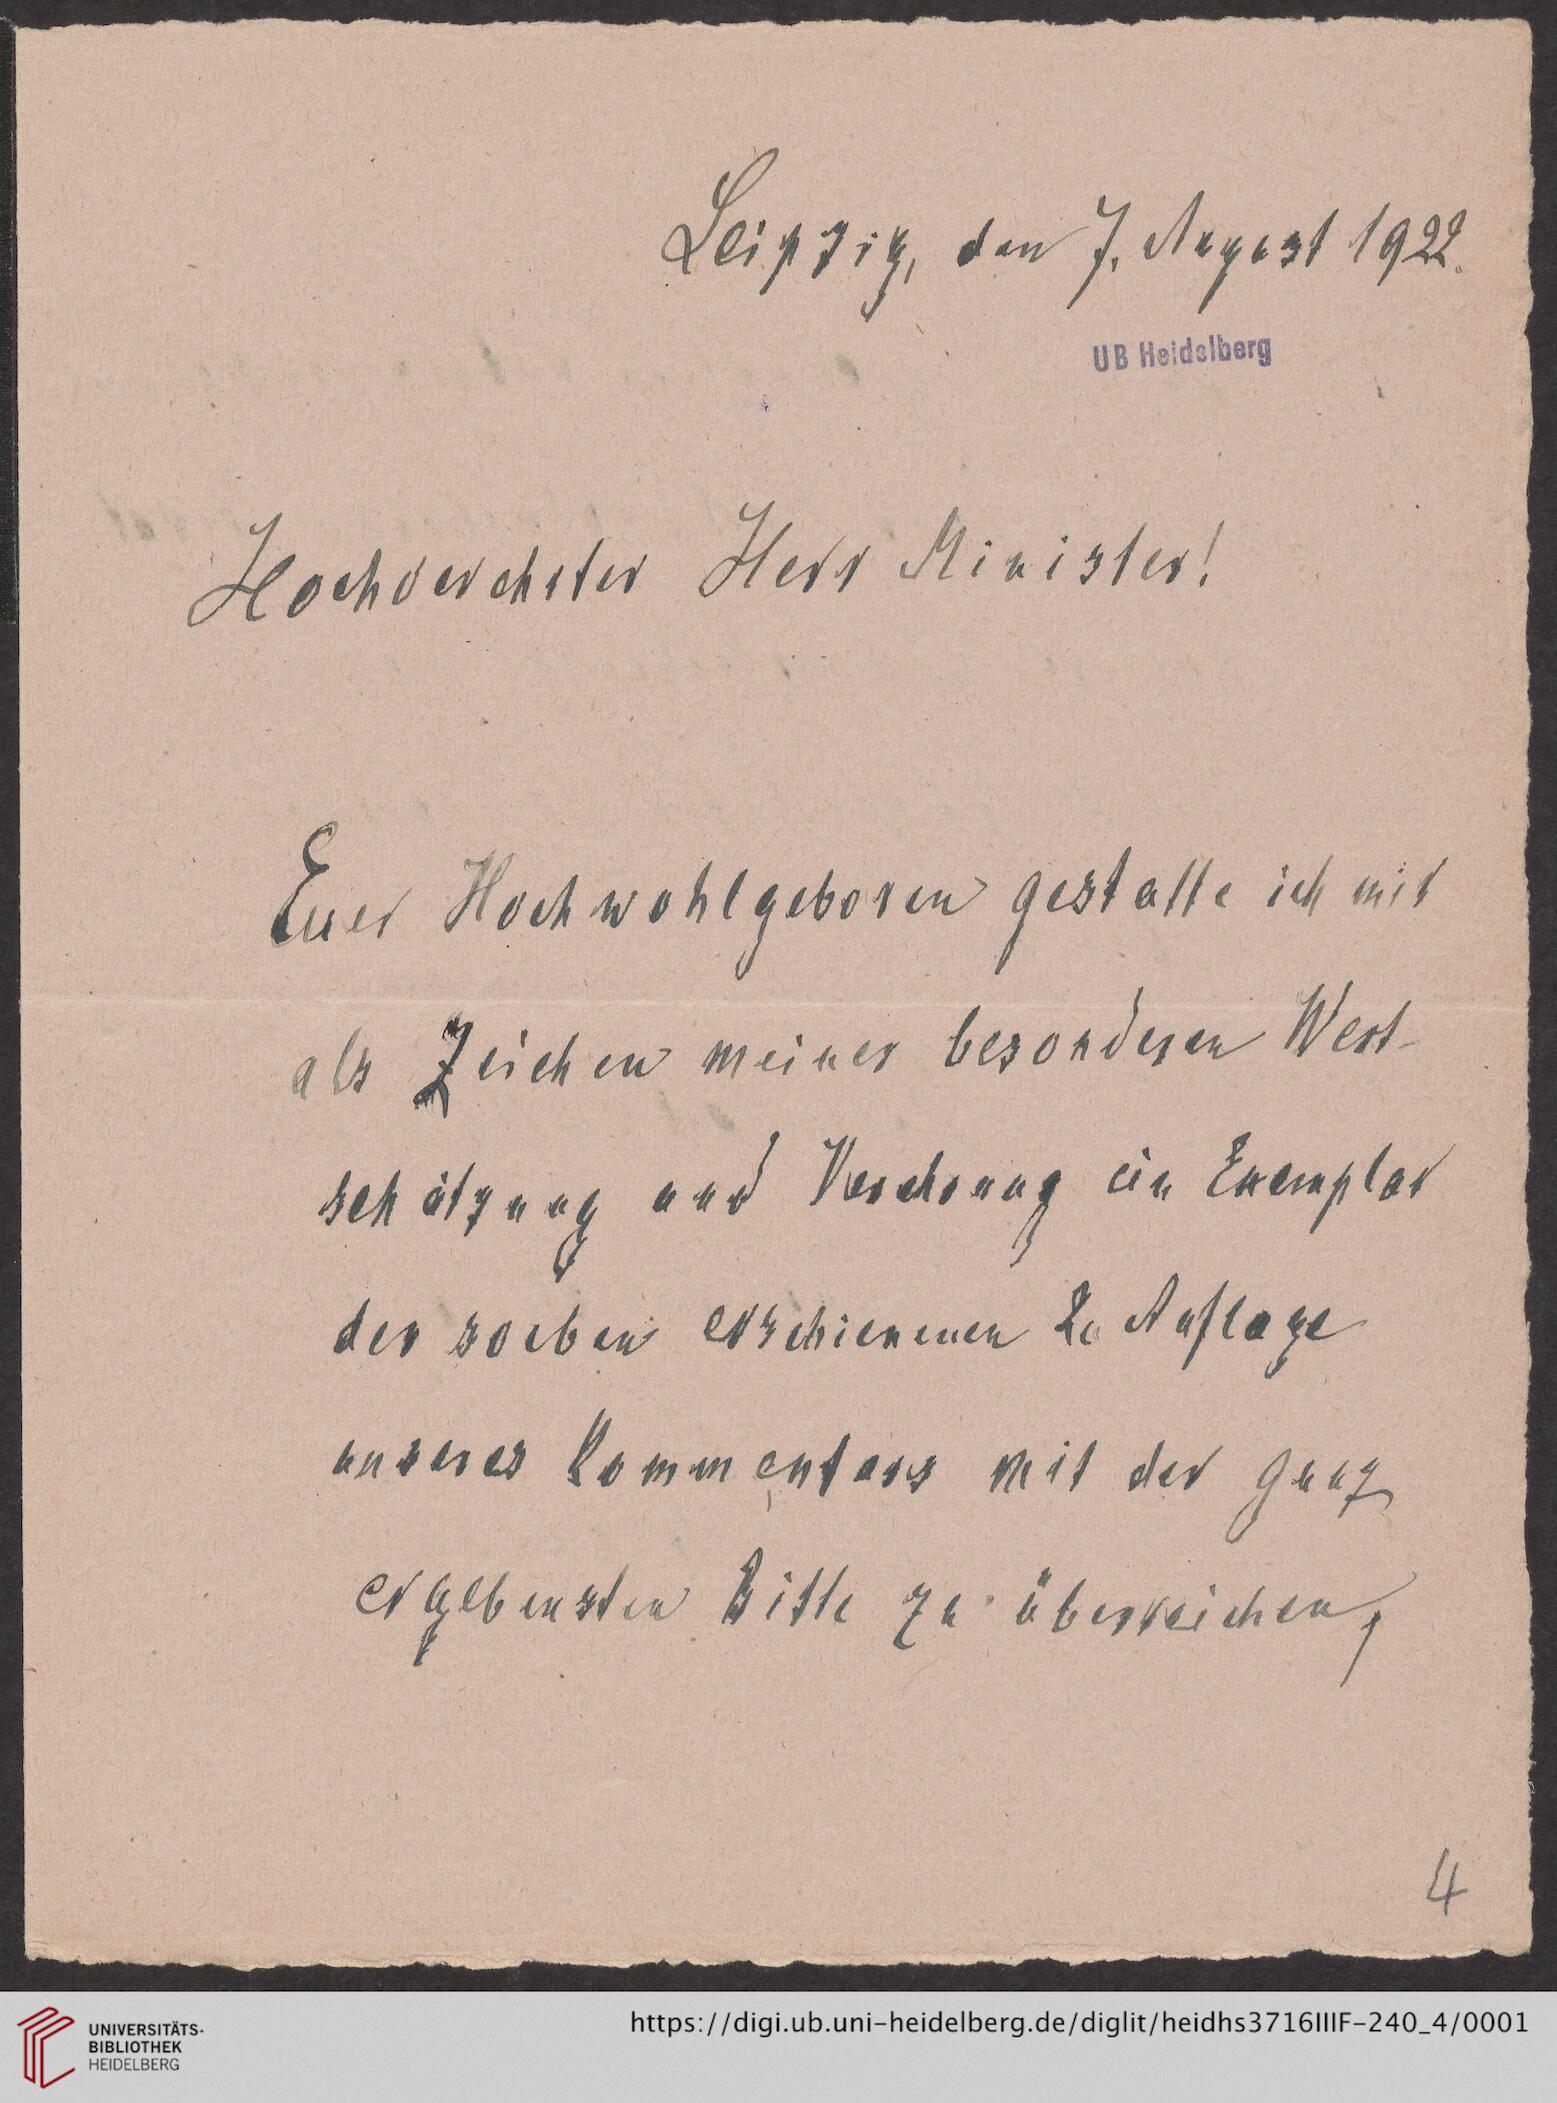 Leipzig, den 7. August 1922.
UB Heidelberg
Hochverehrter Herr Minister!
Euer Hochwohlgeboren gestatte ich mir
als Zeichen meiner besonderen Wert-
schätzung und Verehrung ein Exemplar
der soeben erschienenen 2. Auflage
unseres Kommentars mit der ganz
ergebensten Bitte zu überreichen,
4
UNIVERSITÄTS-
BIBLIOTHEK
HEIDELBERG
https://digi.ub.uni-heidelberg.de/diglit/heidhs3716IIIF-240_4/0001